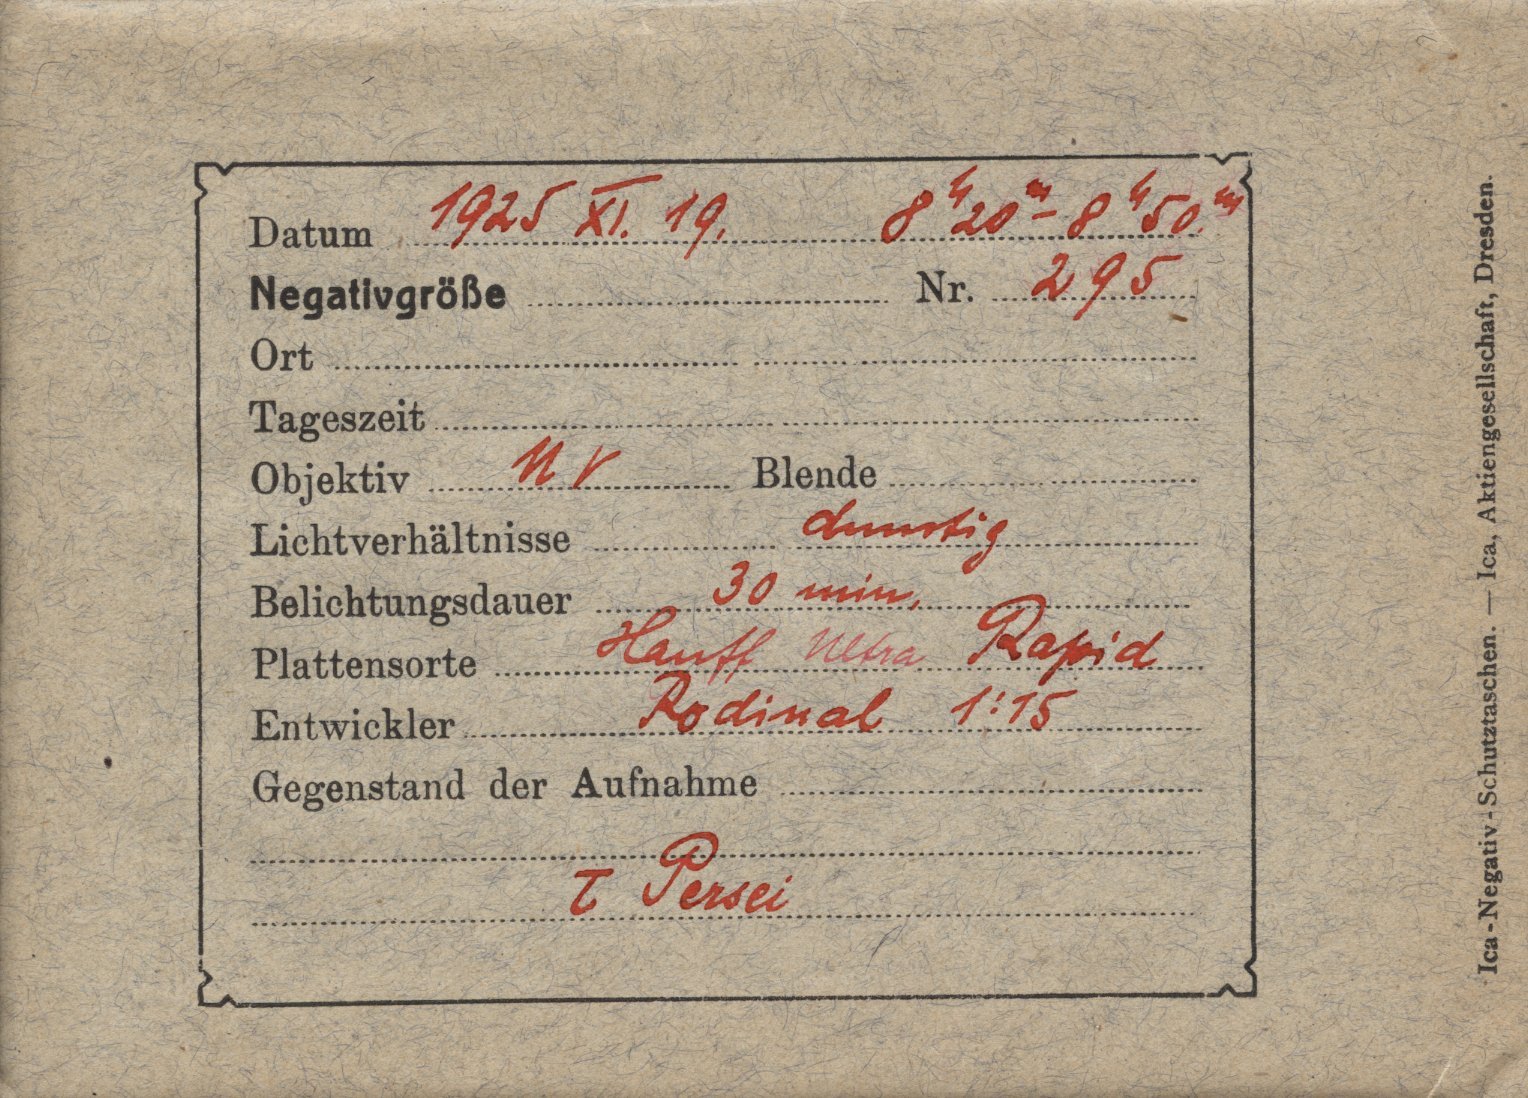 Datum 1925 XI. 19. 8h20m - 8h50.m
Negativgröße Nr. 295
Ort
Tageszeit
Objektiv UV Blende
Lichtverhältnisse dunstig
Belichtungsdauer 30 min.
Plattensorte Hauff Ultra Rapid
Entwickler Rodinal 1:15
Gegenstand der Aufnahme
τ Persei
Ica-Negativ-Schutztaschen. — Ica, Aktiengesellschaft, Dresden.